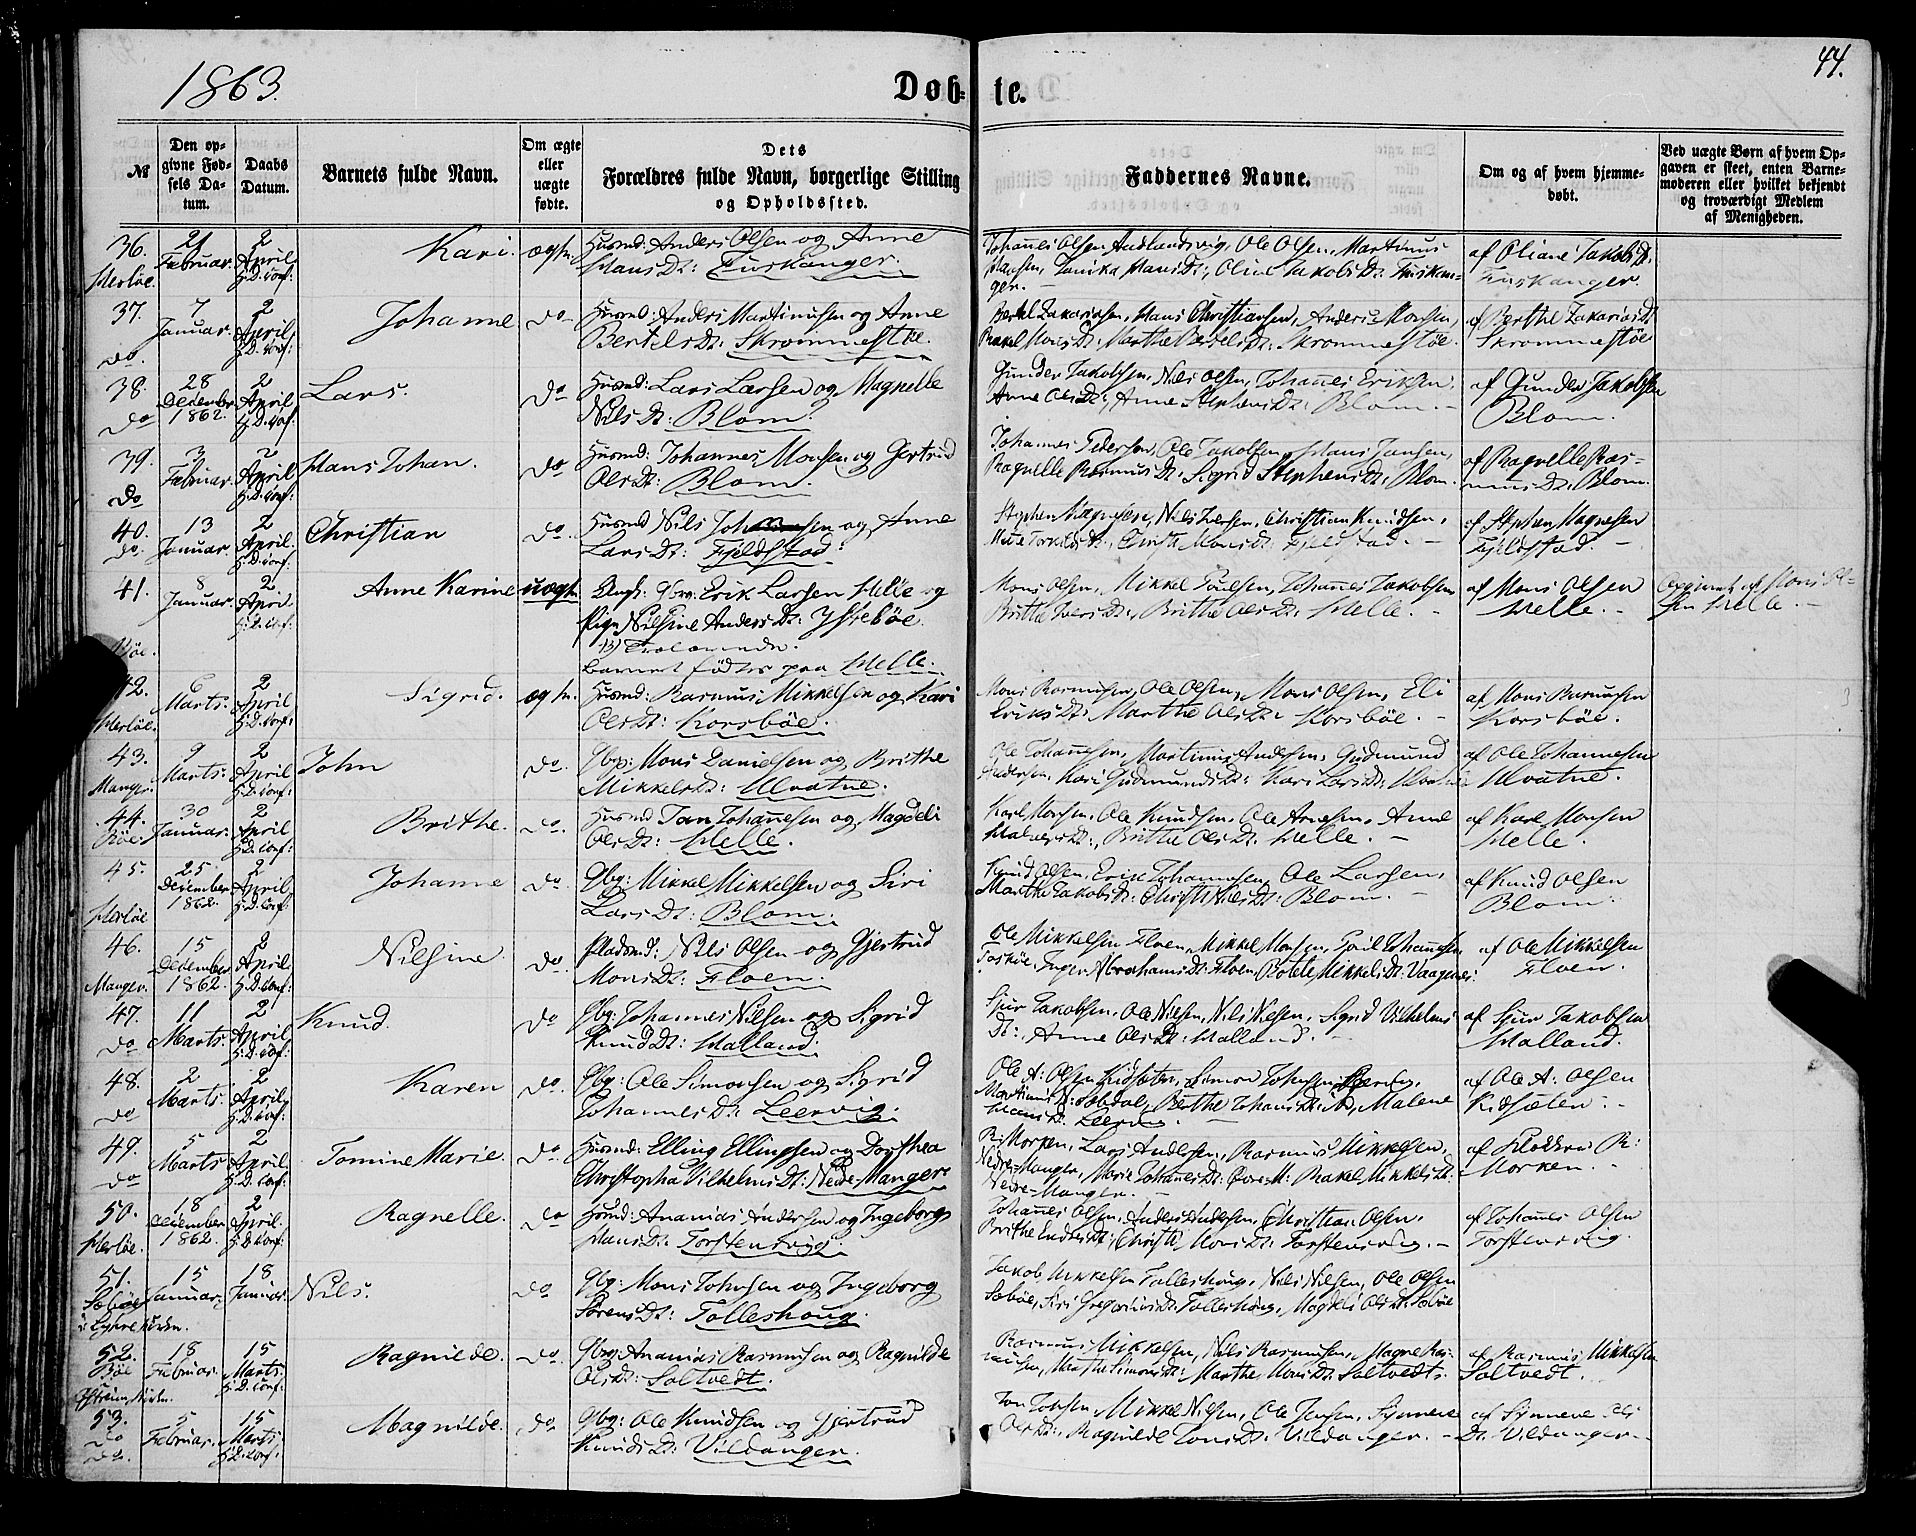 1863.
Døbte.
44.
№
Den opgivne Fødsels Datum.
Daabs Datum.
Barnets fulde Navn.
Om ægte eller uægte fødte.
Dets Forældres fulde Navn, borgerlige Stilling og Opholdssted.
Faddernes Navne.
Om og af hvem hjemmedøbt.
Ved uægte Børn af hvem Opgaven er skeet, enten Barnemoderen eller hvilket bekjendt og troværdigt Medlem af Menigheden.
36. Herløe. 21 Februar. 2 April H:D: conf: Kari. ægte. Husmd: Anders Olsen og Anne
Hans Dt: Furskanger.
Johannes Olsen Ole Olsen, Martinus
Hansen, Hans Dt:, Oline Jakobs Dt: Furskanger.
af Oliane Jakobs Dt:
Furskanger.
37. do. 7 Januar. 2 April H:D: conf: Johanne do Husmd: Anders Martinusen og Anne
Bertels Dt: Skrommestøe.
Bertel Zakariasen, Hans Christiansen, Anders Monsen,
Rakel Mons Dt: Marthe Bertels Dt: Skrommestøe.
af Berthe Zakarias Dt
Skrommestøe
38. do 28 December 1862. 2 April H:D: conf: Lars. do Husmd: Lars Larsen og Magnelle
Nils Dt: Blom.
Gunder Jakobsen, Nils Olsen, Johannes Eriksen
Anne Ols Dt:, Anne Stephens Dt: Blom. -
af Gunder Jakobsen
Blom.
39. do 3 Februar. 2 April H:D: conf: Hans Johan. do Husmd: Johannes Monsen og Gertrud
Ols Dt: Blom.
Johannes Pedersen, Ole Jakobsen, Hans Jansen,
Ragnelle Rasmus Dt: Sigrid Stephens Dt: Blom.
af Ragnelle Ras-
mus Dt: Blom.
40. do. 13 Januar. 2 April. H:D: conf: Christian do. Husmd Nils Johansen og Anne
Lars Dt: Fjeldstad.
Stephen Magnesen, Nils Iversen, Christian Knudsen,
Mette Torkilds Dt:, Christi Mons Dt: Fjeldstad. -
af Stephen Magnesen
Fjeldstad. -
41. Bøe. 8 Januar. 2 April H:D: conf: Anne Karine uægte. Ungk: Gbr: Erik Larsen Helle og
Pige Nilsine Anders Dt: Ystebøe.
Barnet fødtes paa Helle.
Mons Olsen, Mikkel Poulsen, Johannes Jakobsen
Brithe Ivers Dt:, Brithe Ols Dt: Helle. -
af Mons Olsen
Helle. -
Opgivet af Mons Ol-
sen Helle. -
42. Herløe. 6 Marts. 2 April H:D: conf: Sigrid. ægte. Husmd: Rasmus Mikkelsen og Kari
Ols Dt: Korsbøe.
Mons Rasmusen, Ole Olsen, Mons Olsen, Eli
Eriks Dt: Marthe Ols Dt: Korsbøe. -
af Mons Rasmusen
Korsbøe.
43. Manger. 9 Marts. 2 April H:D: conf: John do. Gbr: Mons Danielsen og Brithe
Mikkels Dt: Ulvatne.
Ole Johannesen, Martinus Andersen, Gudmund
Andersen, Kari Gudmunds Dt: Kari Lars Dt:
af Ole Johannesen
Ulvatne.
44. Bøe. 30 Januar. 2 April H:D: conf: Brithe. do. Husmd Jan Johannesen og Magdeli
Ols Dt: Helle.
Karl Monsen, Ole Knudsen, Ole Arnesen, Anne
Brithe Ols Dt: Helle. -
af Karl Monsen
Helle.
45. Herløe 25 December 1862. 2 April H:D: conf: Johanne do. Gbg: Mikkel Mikkelsen og Siri
Lars Dt: Blom.
Knud Olsen, Erik Johannesen, Ole Larsen,
Marthe Jakobs Dt: Christi Nils Dt: Blom. -
af Knud Olsen
Blom.
46. Manger. 15 December 1862. 2 April H:D: conf: Nilsine. do. Pladsmd: Nils Olsen og Gjertrud
Mons Dt: Floen.
Ole Mikkelsen Floen, Mikkel Monsen, Johannesen
Toskøe, Inger Abrahams Dt: Floen Botele Mikkels Dt: Vaagenes:
af Ole Mikkelsen
Floen.
47. do 11 Marts. 2 April H:D: conf: Knud. do Gbg: Johannes Nilsen og Sigrid
Knuds Dt: Halland.
Sjur Jakobsen, Ole Nilsen, Nils Nilsen, Sigrid Vilhelms
Dt:, Anne Ols Dt: Halland. -
af Sjur Jakobsen
Halland.
48. do 2 Marts. 2 April H:D: conf: Karen do. Gbg: Ole Simonsen og Sigrid
Johannes Dt: Leervig.
Ole A: Olsen Kidsølen, Simon Johnsen
Berthe Johans Dt: Malene
Hans Dt: Leervig. -
af Ole A: Olsen
Kidsølen. -
49. do 5 Marts 2 April H:D: conf: Tomine Marie. do. Husmd: Elling Ellingsen og Dorthea
Christopha Vilhelms Dt: Nedre-Manger
R: Morken, Lars Andersen, Rasmus Mikkelsen,
Nedre-Manger, Marie Johannes Dt: Øvre-M: Rakel Mikkels Dt:
Nedre-Manger. -
af Klokker R:
Morken. -
50. Herløe. 18 December 1862. 2 April. H:D: conf: Ragnelle. do Husmd: Ananias Andersen og Ingeborg
Hans Dt: Torstensvig.
Johannes Olsen, Anders Andersen, Christian Olsen,
Brithe Endres Dt:, Christi Mons Dt: Torstensvig. -
af Johannes Olsen
Torstensvig.
51. Sæbøe i Lygre Kirke. 15 Januar. 18 Januar. Nils. do Gbg: Mons Johnsen og Ingeborg
Sørens Dt: Tolleshoug.
Jakob Mikkelsen Tolleshoug, Nils Nilsen, Ole Olsen
Sæbøe, Siri Gregorius Dt: Tolleshoug, Magdeli Ols Dt: Sæbøe
52. Bøe 18 Februar. 15 Marts. H:D: conf: Ragnilde. do. Gbg: Ananias Rasmusen og Ragnilde
Ols Dt: Soltvedt.
Rasmus Mikkelsen, Nils Rasmusen, Magne Ras-
musen, Marthe Simons Dt: Marthe Mons Dt: Soltvedt.
af Rasmus Mikkelsen
Soltvedt.
53. do do. 5 Februar. 15 Marts H:D: conf: Magnilde. do Gbg: Ole Knudsen og Gjertrud
Knuds Dt: Vildanger.
Jon Jonsen, Mikkel Nilsen, Ole Jensen, Synneve
Ols Dt:, Ragnilde Jons Dt: Vildanger. -
af Synneve Ols
Dt: Vildanger. -